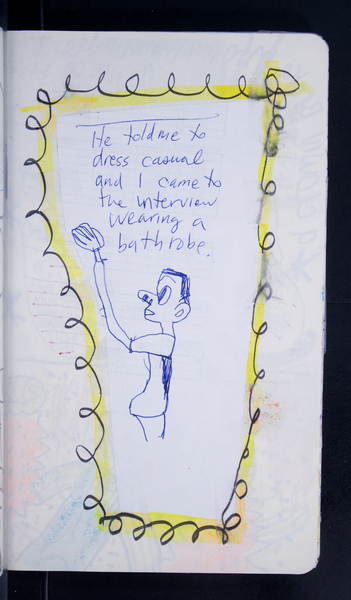 He told me to
dress casual
and I came to
the interview
wearing a
bathrobe.